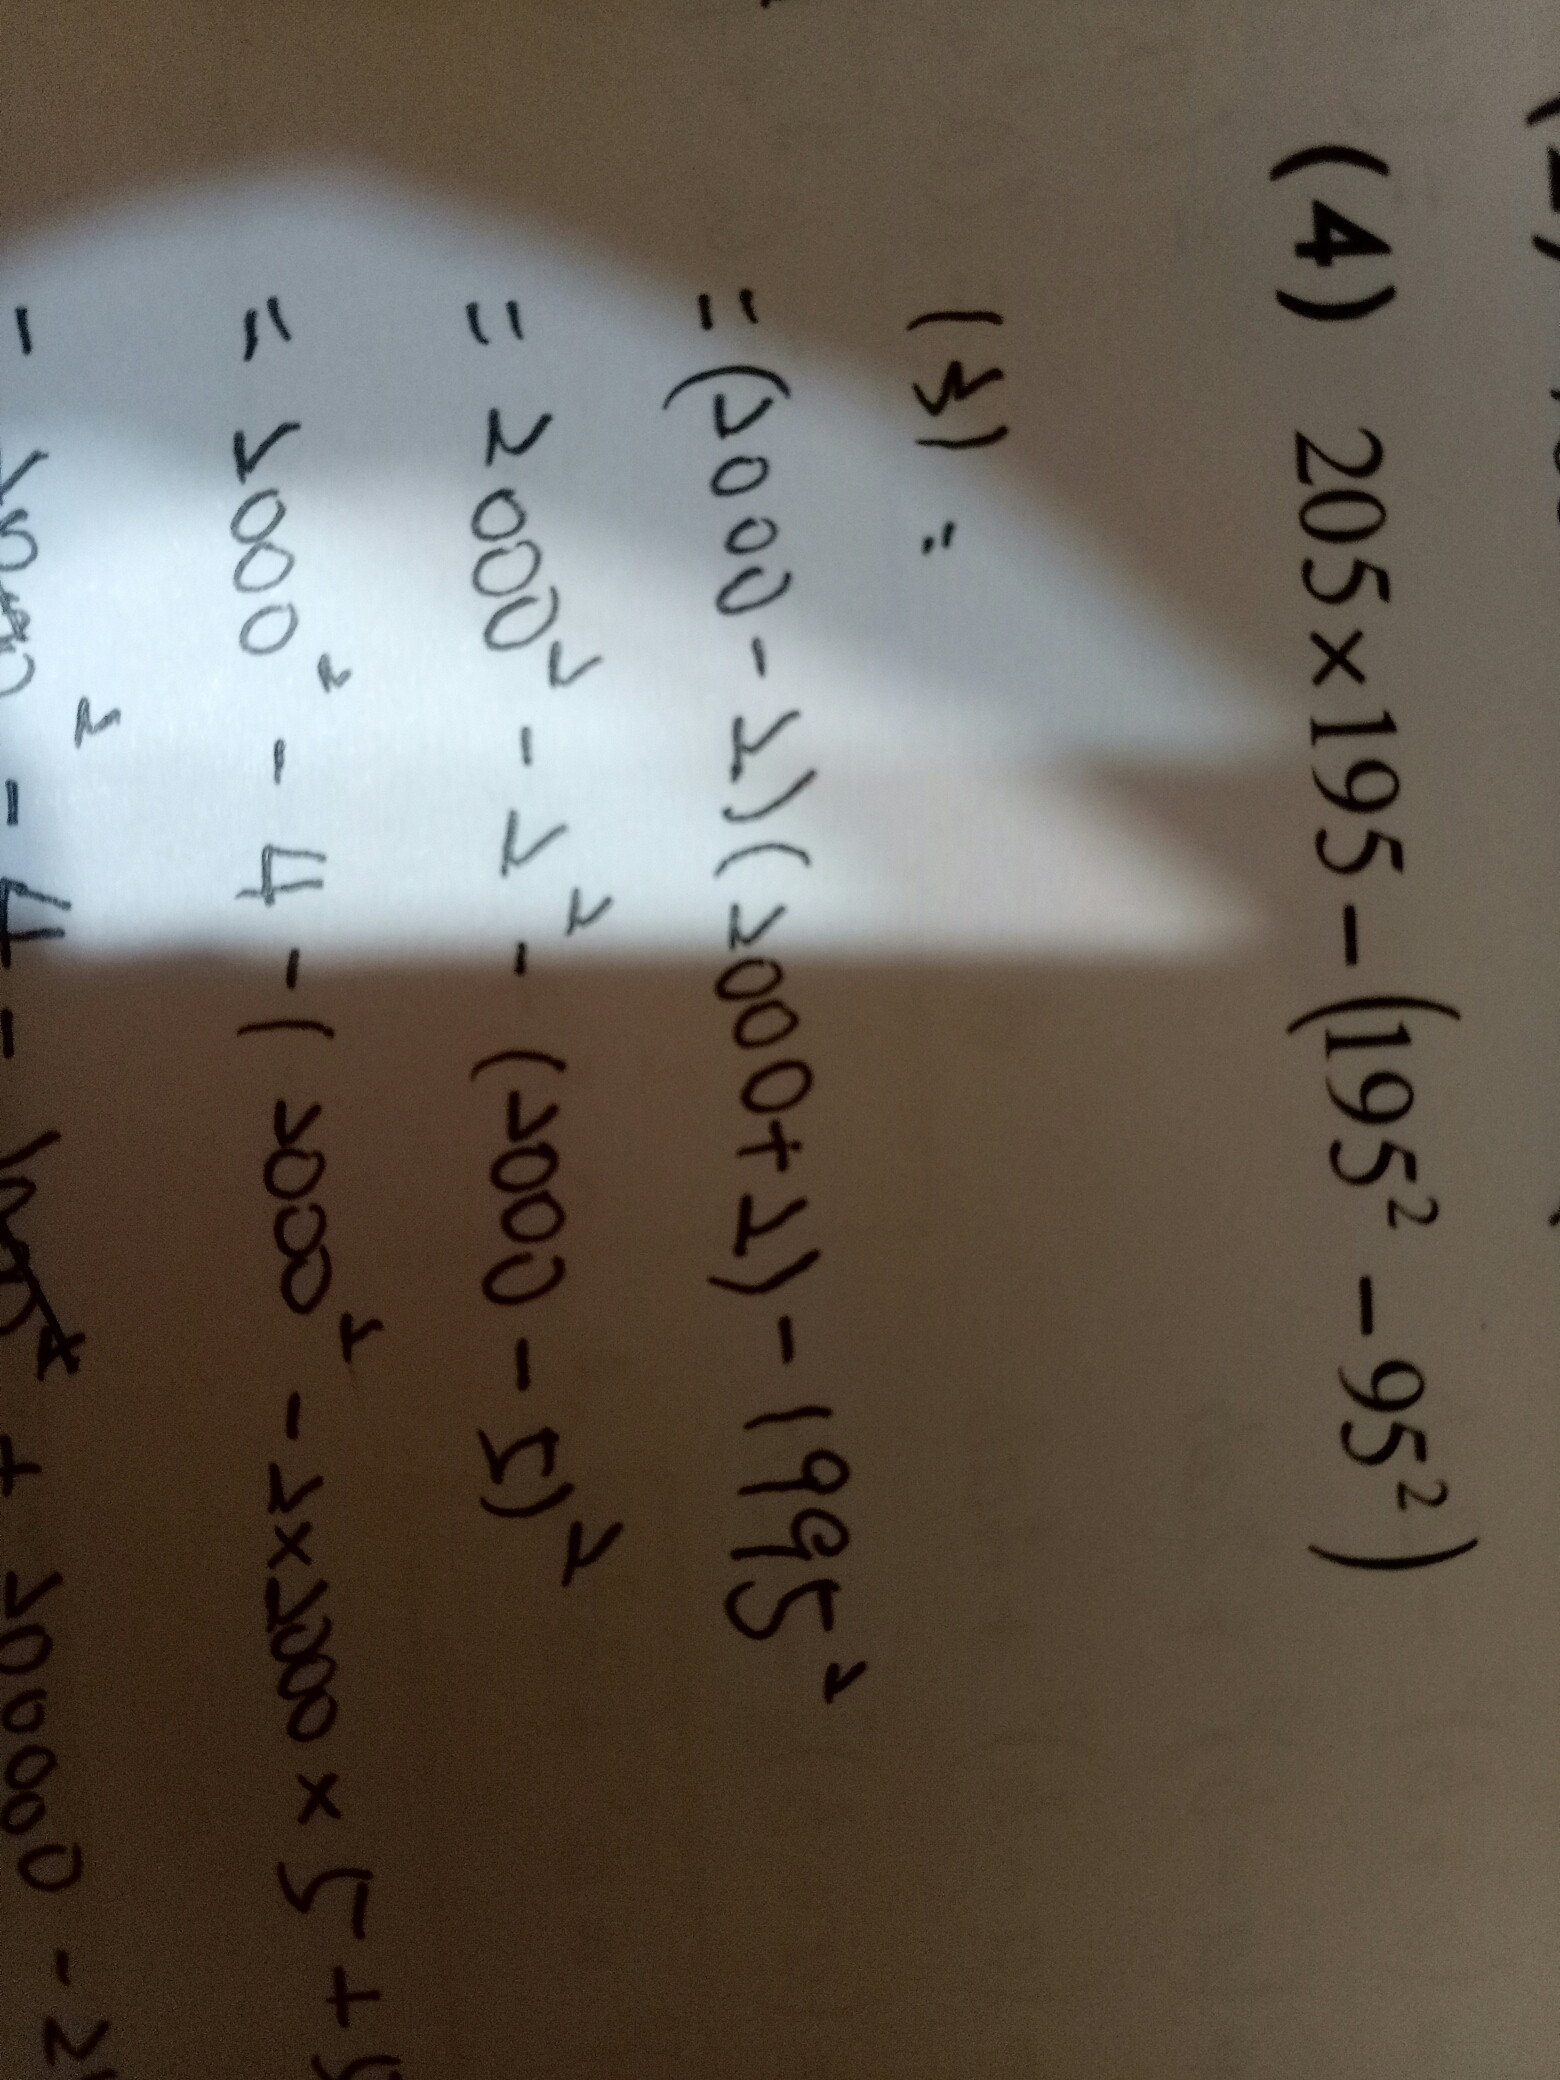 (4) 205×195−(195² −95²)
(3) =
=(2000-2)(2000+2)-1995²
= 2000² - 2² - (2000 - 5)²
= 2000² - 4 - (2000² - 2×2000 × 5 +
- 4 - + 20000 - 2